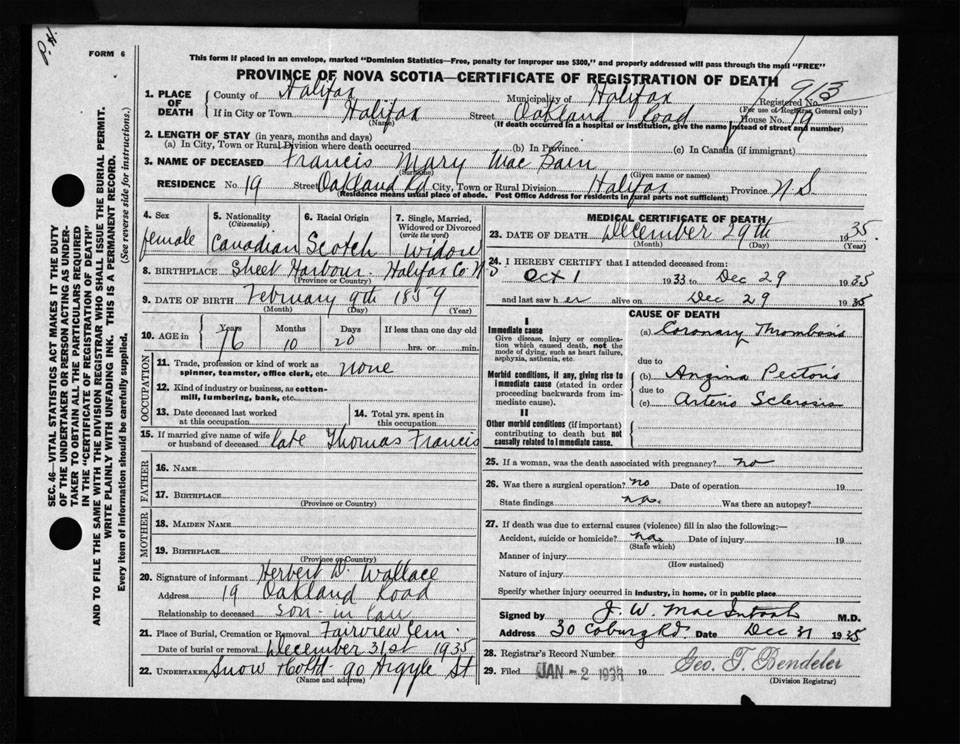 P. H.
FORM 6
This form if placed in an envelope, marked "Dominion Statistics—Free, penalty for improper use $300," and properly addressed will pass through the mail "FREE"
PROVINCE OF NOVA SCOTIA—CERTIFICATE OF REGISTRATION OF DEATH
SEC. 46—VITAL STATISTICS ACT MAKES IT THE DUTY
OF THE UNDERTAKER OR PERSON ACTING AS UNDER-
TAKER TO OBTAIN ALL THE PARTICULARS REQUIRED
IN THE "CERTIFICATE OF REGISTRATION OF DEATH"
AND TO FILE THE SAME WITH THE DIVISION REGISTRAR WHO SHALL ISSUE THE BURIAL PERMIT.
WRITE PLAINLY WITH UNFADING INK. THIS IS A PERMANENT RECORD.
Every item of information should be carefully supplied. (See reverse side for instructions.)
1. PLACE OF DEATH County of Halifax Municipality of Halifax Registered No. 913
(For use of Registrar General only)
If in City or Town Halifax Street Oakland Road House No. 19
(Name) (If death occurred in a hospital or institution, give the name instead of street and number)
2. LENGTH OF STAY (in years, months and days)
(a) In City, Town or Rural Division where death occurred (b) In Province (c) In Canada (if immigrant)
3. NAME OF DECEASED Francis Mary Mac Bain
(Surname) (Given name or names)
RESIDENCE No. 19 Street Oakland Rd City, Town or Rural Division Halifax Province N.S.
(Residence means usual place of abode. Post Office Address for residents in rural parts not sufficient)
4. Sex female
5. Nationality (Citizenship) Canadian
6. Racial Origin Scotch
7. Single, Married, Widowed or Divorced (write the word) widow
8. BIRTHPLACE Sheet Harbour. Halifax Co N S
(Province or Country)
9. DATE OF BIRTH February 9th 1859
(Month) (Day) (Year)
10. AGE in Years 76 Months 10 Days 20 If less than one day old hrs. or min.
OCCUPATION
11. Trade, profession or kind of work as spinner, teamster, office clerk, etc. none
12. Kind of industry or business, as cotton-mill, lumbering, bank, etc.
13. Date deceased last worked at this occupation
14. Total yrs. spent in this occupation
15. If married give name of wife or husband of deceased late Thomas Francis
FATHER
16. NAME
17. BIRTHPLACE
(Province or Country)
MOTHER
18. MAIDEN NAME
19. BIRTHPLACE
(Province or Country)
20. Signature of informant Herbert D. Wallace
Address 19 Oakland Road
Relationship to deceased son-in law
21. Place of Burial, Cremation or Removal Fairview Cem.
Date of burial or removal December 31st 1935
22. UNDERTAKER Snow & Co Ltd 90 Argyle St
(Name and address)
MEDICAL CERTIFICATE OF DEATH
23. DATE OF DEATH December 29th 1935.
(Month) (Day) (Year)
24. I HEREBY CERTIFY that I attended deceased from:
Oct 1 1933 to Dec 29 1935
and last saw h er alive on Dec 29 1935
CAUSE OF DEATH
I
Immediate cause
Give disease, injury or complication which caused death, not the mode of dying, such as heart failure, asphyxia, asthenia, etc.
(a) Coronary Thrombosis
due to
Morbid conditions, if any, giving rise to immediate cause (stated in order proceeding backwards from immediate cause).
(b) Angina Pectoris
due to
(c) Arterio Sclerosis
II
Other morbid conditions (if important) contributing to death but not causally related to immediate cause.
25. If a woman, was the death associated with pregnancy? no
26. Was there a surgical operation? no Date of operation 19
State findings na. Was there an autopsy?
27. If death was due to external causes (violence) fill in also the following:—
Accident, suicide or homicide? na. Date of injury 19
(State which)
Manner of injury
(How sustained)
Nature of injury
Specify whether injury occurred in industry, in home, or in public place
Signed by J. W. MacIntosh M.D.
Address 30 Coburg Rd. Date Dec 31 1935
28. Registrar's Record Number
29. Filed JAN - 2 193 Geo. T. Bendeler
(Division Registrar)